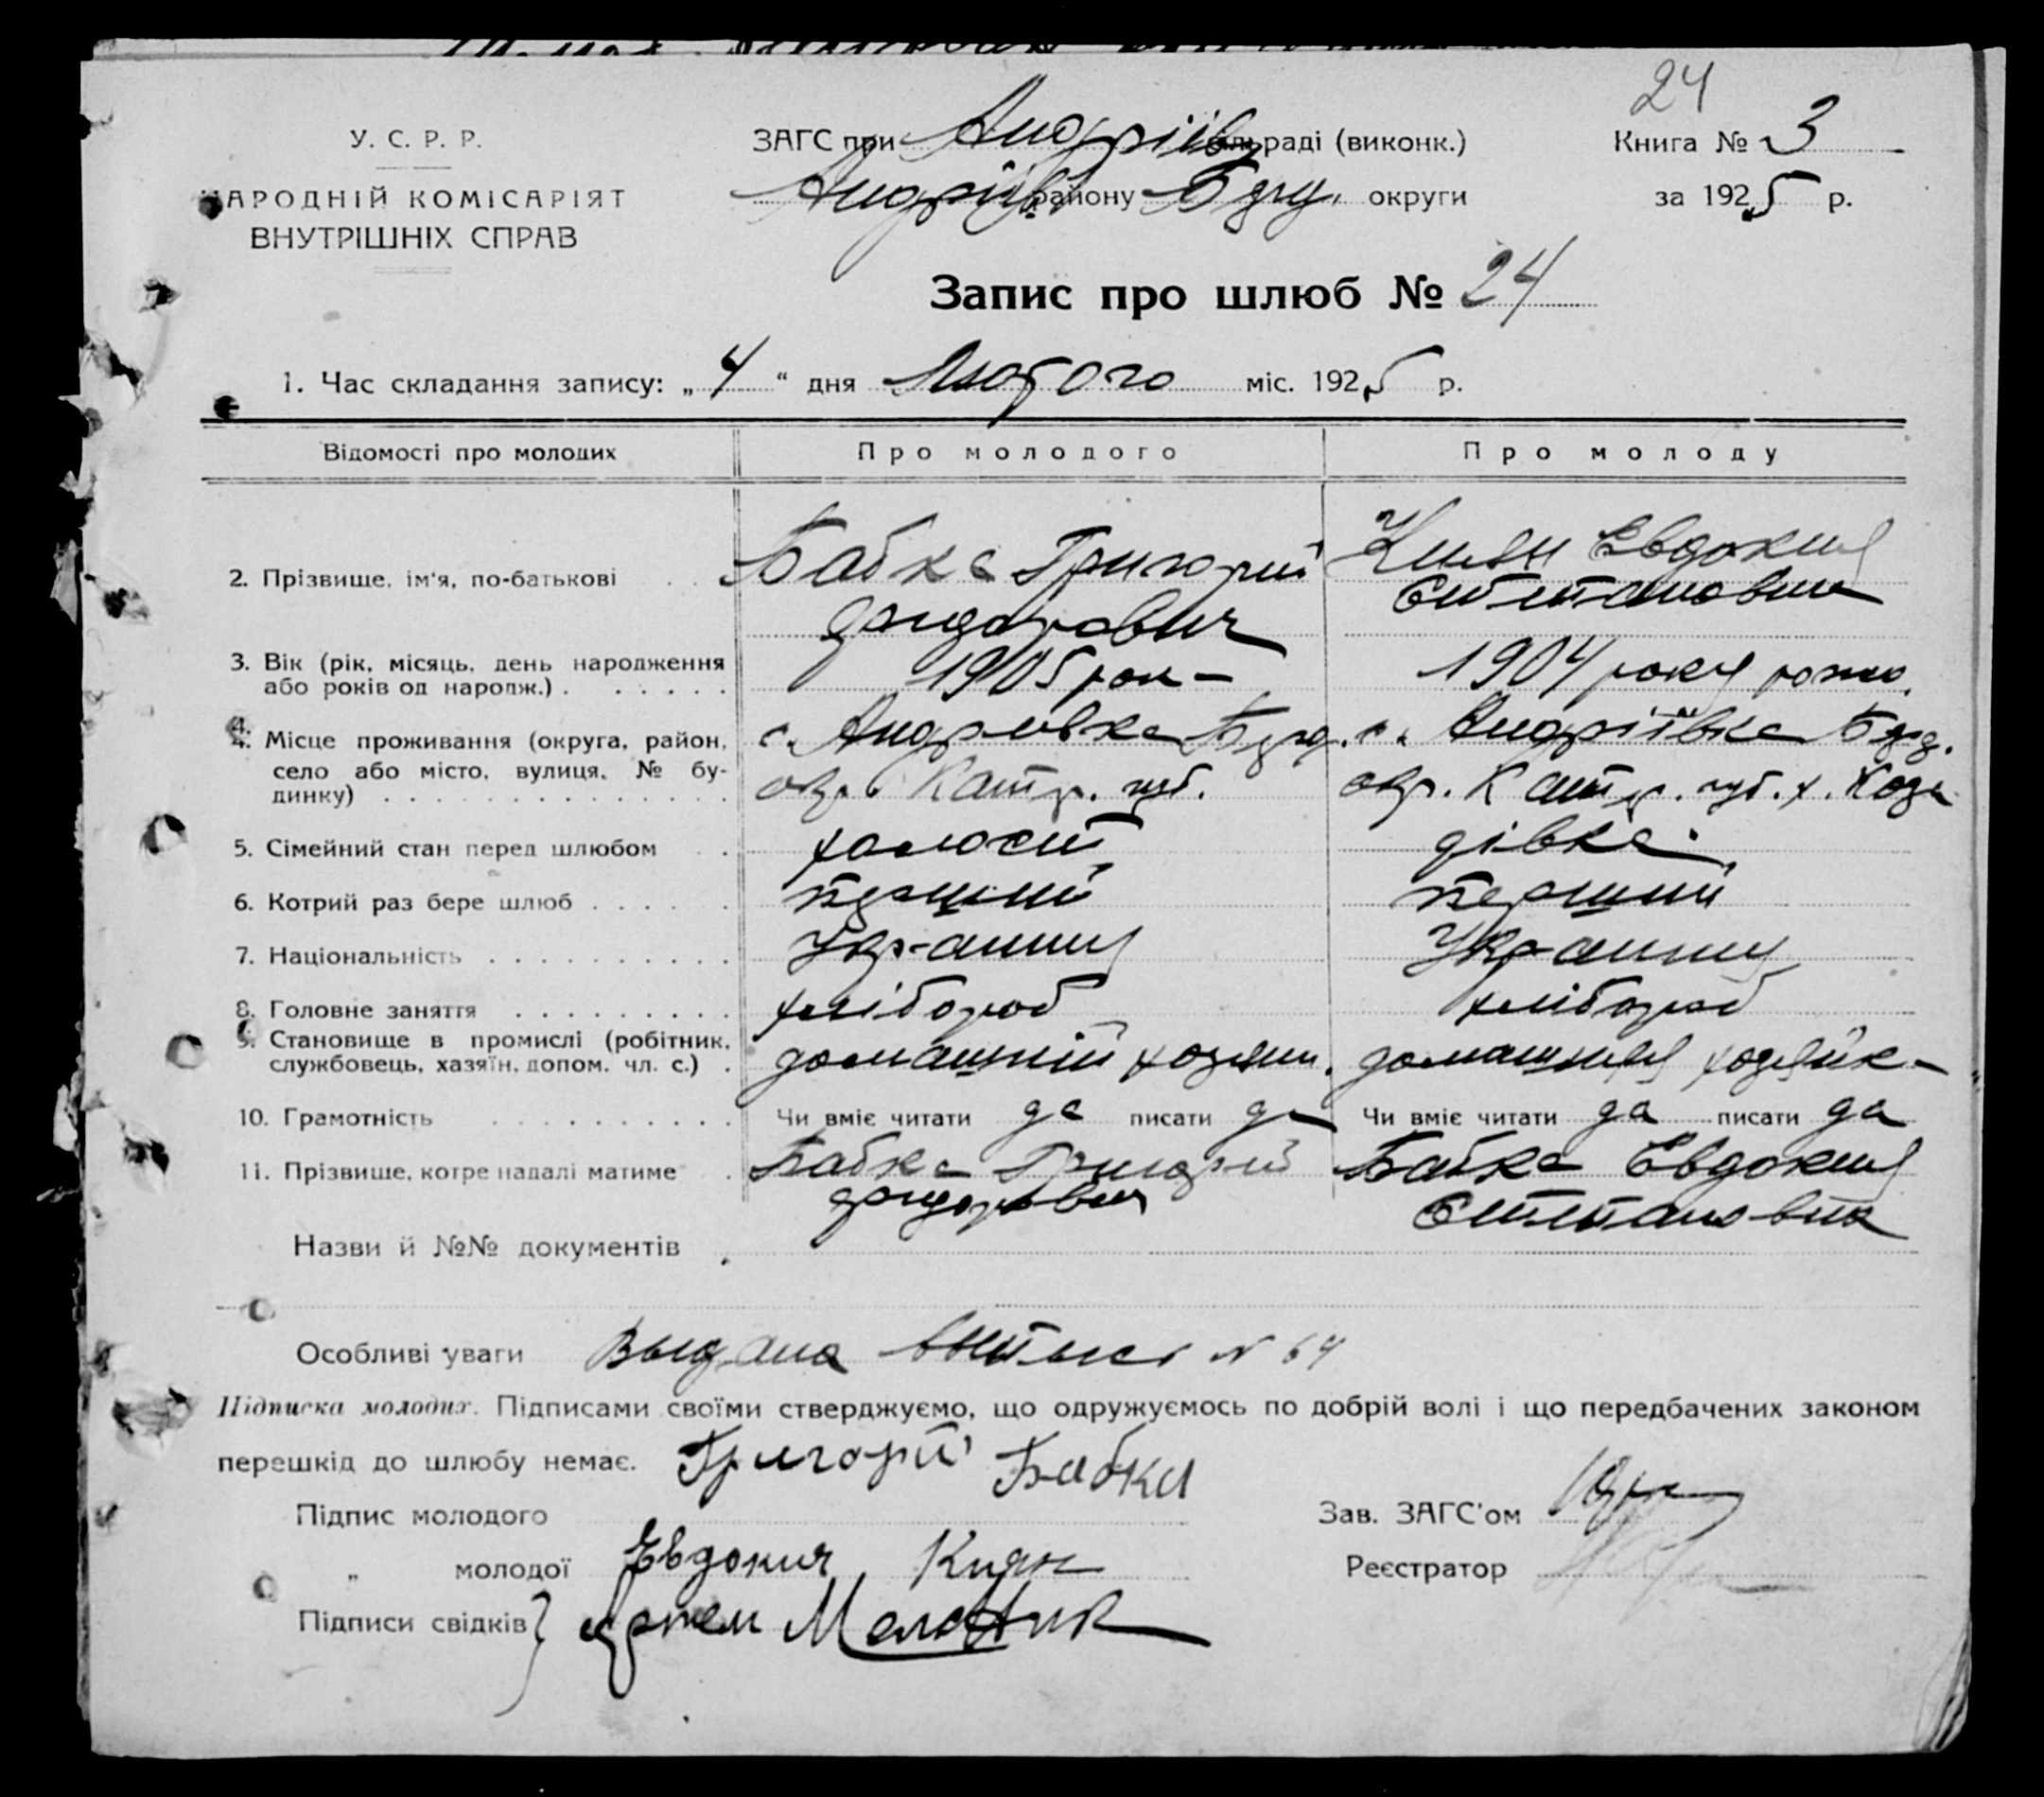 24
У. С. Р. Р.
НАРОДНІЙ КОМІСАРІЯТ
ВНУТРІШНІХ СПРАВ
ЗАГС при Андріїв сільраді (виконк.)
Андріїв району Бұрд. округи
Книга № 3
за 1925 р.
Запис про шлюб № 24
1. Час складання запису: „4“ дня Лютого міс. 1925 р.
Відомості про молодих Про молодого Про молоду
2. Прізвище, ім'я, по-батькові Бабка Григорий Киян Евдокия
ФидоровичСтитановна
3. Вік (рік, місяць, день народження 1905 рок 1904 року рожд.
або років од народж.)
4. Місце проживання (округа, район, с. Андровка Берд. с. Андріївка Берд.
село або місто, вулиця, № бу- окр. Катер. губ. окр. Катер. губ. х.
динку)
5. Сімейний стан перед шлюбом холостий дівка
6. Котрий раз бере шлюб перший перший
7. Національність Украинец Украинец
8. Головне заняття хлібороб хлібороб
9. Становище в промислі (робітник, домашній хозяин. домашняя хозяйка
службовець, хазяїн, допом. чл. с.)
10. Грамотність Чи вміє читати да писати да Чи вміє читати да писати да
11. Прізвище, котре надалі матиме Бабка Григорий Бабка Евдокия
Фидорович Ститановна
Назви й №№ документів
Особливі уваги Выдана выпись N 64
Підписка молодих. Підписами своїми стверджуємо, що одружуємось по добрій волі і що передбачених законом
перешкід до шлюбу немає. Григорий Бабка
Підпис молодого
„ молодої Евдокия Киян
Зав. ЗАГС'ом
Реєстратор
Підписи свідків Артем